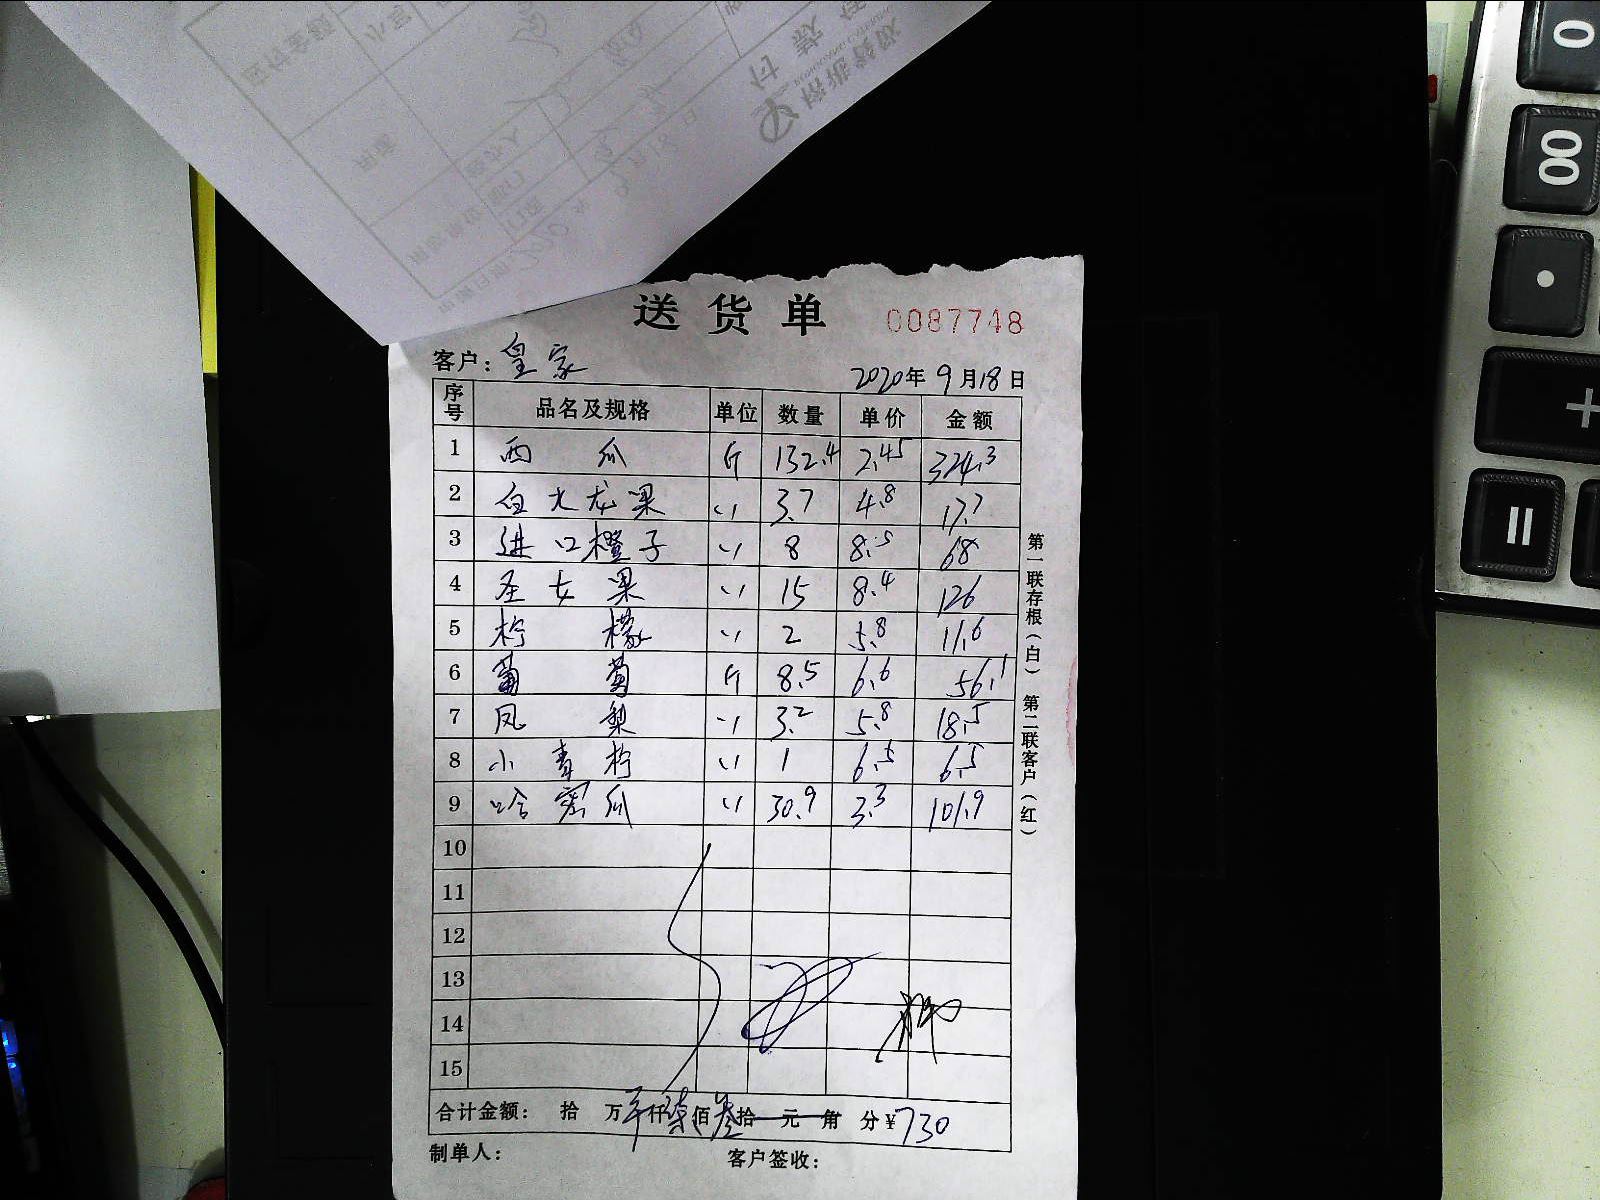 送货单 0087748
客户：皇家 2020年9月18日
序号 品名及规格 单位 数量 单价 金额
1 西瓜 斤 132.4 2.45 324.3
2 白火龙果 〃 3.7 4.8 17.7
3 进口橙子 〃 8 8.5 68
4 圣女果 〃 15 8.4 126
5 柠檬 〃 2 5.8 11.6
6 葡萄 斤 8.5 6.6 56.1
7 凤梨 〃 3.2 5.8 18.5
8 小青柠 〃 1 6.5 6.5
9 哈密瓜 〃 30.9 3.3 101.9
10
11
12
13
14
15
合计金额： 拾 万 仟柒佰叁拾 元 角 分￥730
制单人： 客户签收：
第一联存根（白） 第二联客户（红）
0
00
.
+
=